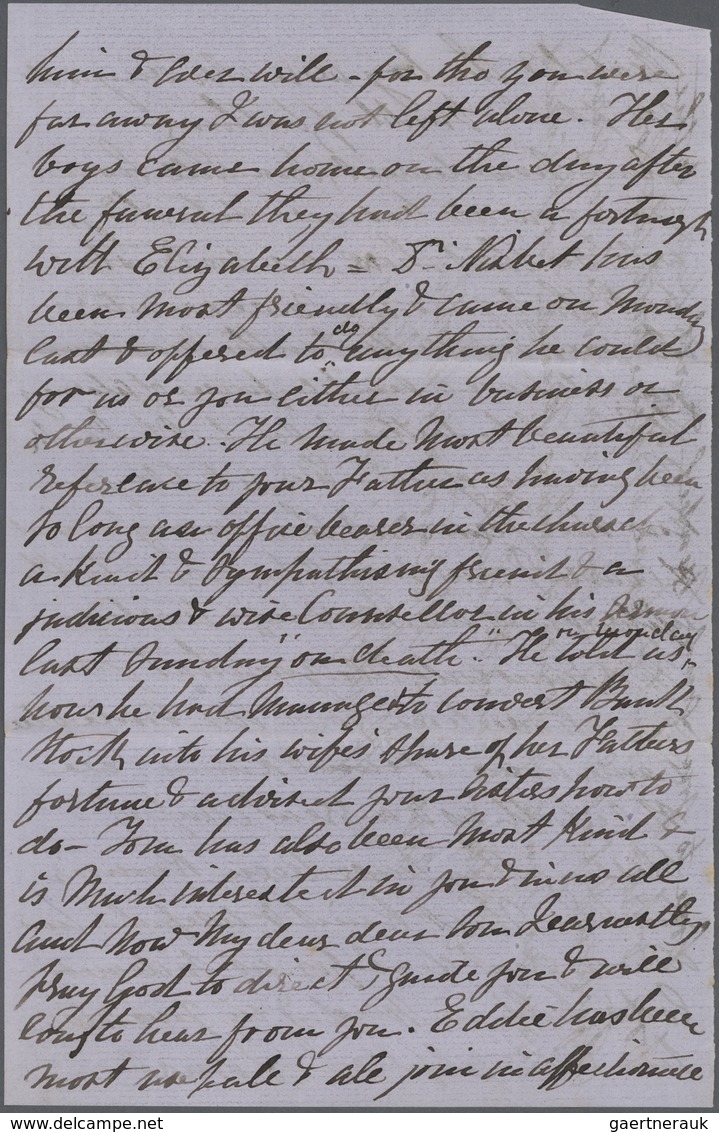 him & ever will - for tho you were
far away I was not left alone. Her
boys came home on the day after
the funeral they had been a fortnigh
with Elizabeth = Dr. Nisbet has
been most friendly & came on Monday
last & offered to do anything he could
for us or you either in business or
otherwise. He made most beautiful
reference to your Father as having been
so long an office bearer in the church
a kind & sympathising friend & a
judicious & wise Counsellor in his sermon
last Sunday "on death." He told us on monday
how he had managed to convert Bank
Stock into his wifes share of her Fathers
fortune & advised your sisters how to
do - Tom has also been most kind &
is much interested in you & in us all
and now my dear dear son I earnestly
pray God to direct & guide you & will
long to hear from you. Eddie has been
most & all join in affectionate
gaertnerauk